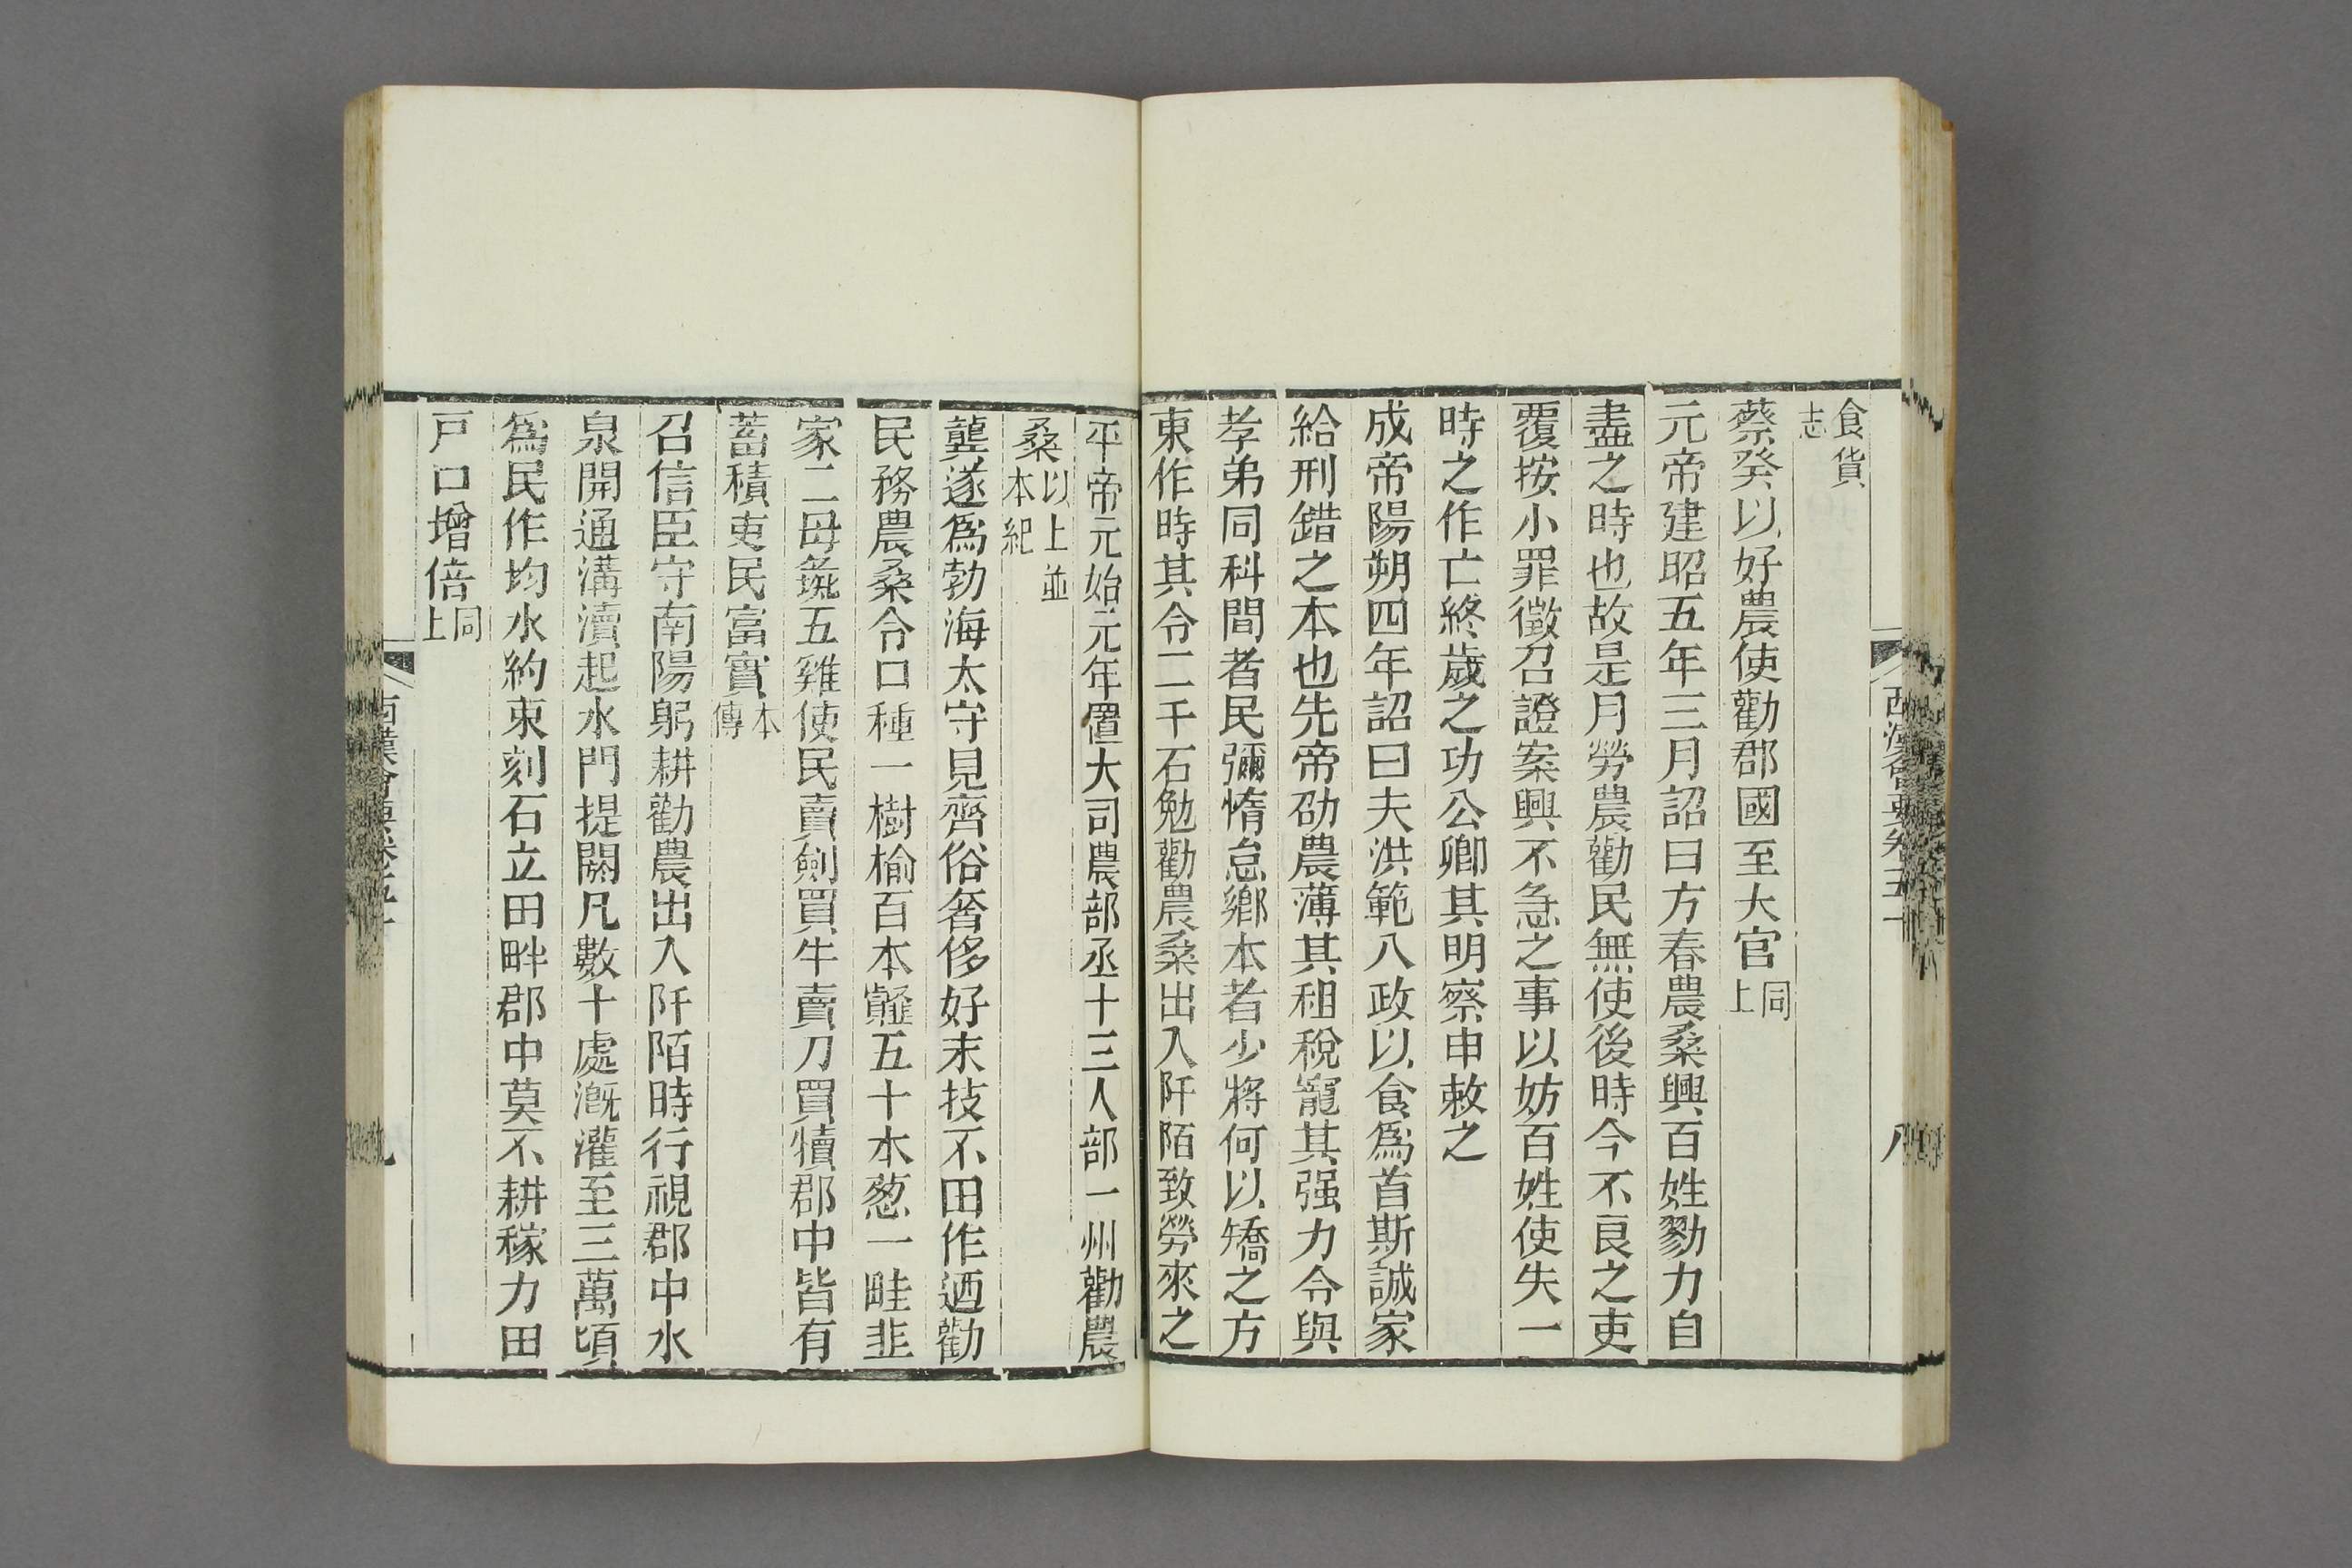 食貨志
蔡癸以好農使勸郡國至大官同上
元帝建昭五年三月詔曰方春農桑興百姓勠力自
盡之時也故是月勞農勸民無使後時今不良之吏
覆按小罪徵召證案興不急之事以妨百姓使失一
時之作亡終歲之功公卿其明察申敕之
成帝陽朔四年詔曰夫洪範八政以食爲首斯誠家
給刑錯之本也先帝劭農薄其租稅寵其强力令與
孝弟同科間者民彌惰怠鄉本者少將何以矯之方
東作時其令二千石勉勸農桑出入阡陌致勞來之
平帝元始元年置大司農部丞十三人部一州勸農
桑以上並本紀
龔遂爲勃海太守見齊俗奢侈好末技不田作迺勸
民務農桑令口種一樹榆百本䪥五十本葱一畦韭
家二母彘五雞使民賣劍買牛賣刀買犢郡中皆有
蓄積吏民富實本傳
召信臣守南陽躬耕勸農出入阡陌時行視郡中水
泉開通溝瀆起水門提閼凡數十處溉灌至三萬頃
爲民作均水約束刻石立田畔郡中莫不耕稼力田
戸口增倍同上
西漢會要卷五十
八
西漢會要卷五十
九